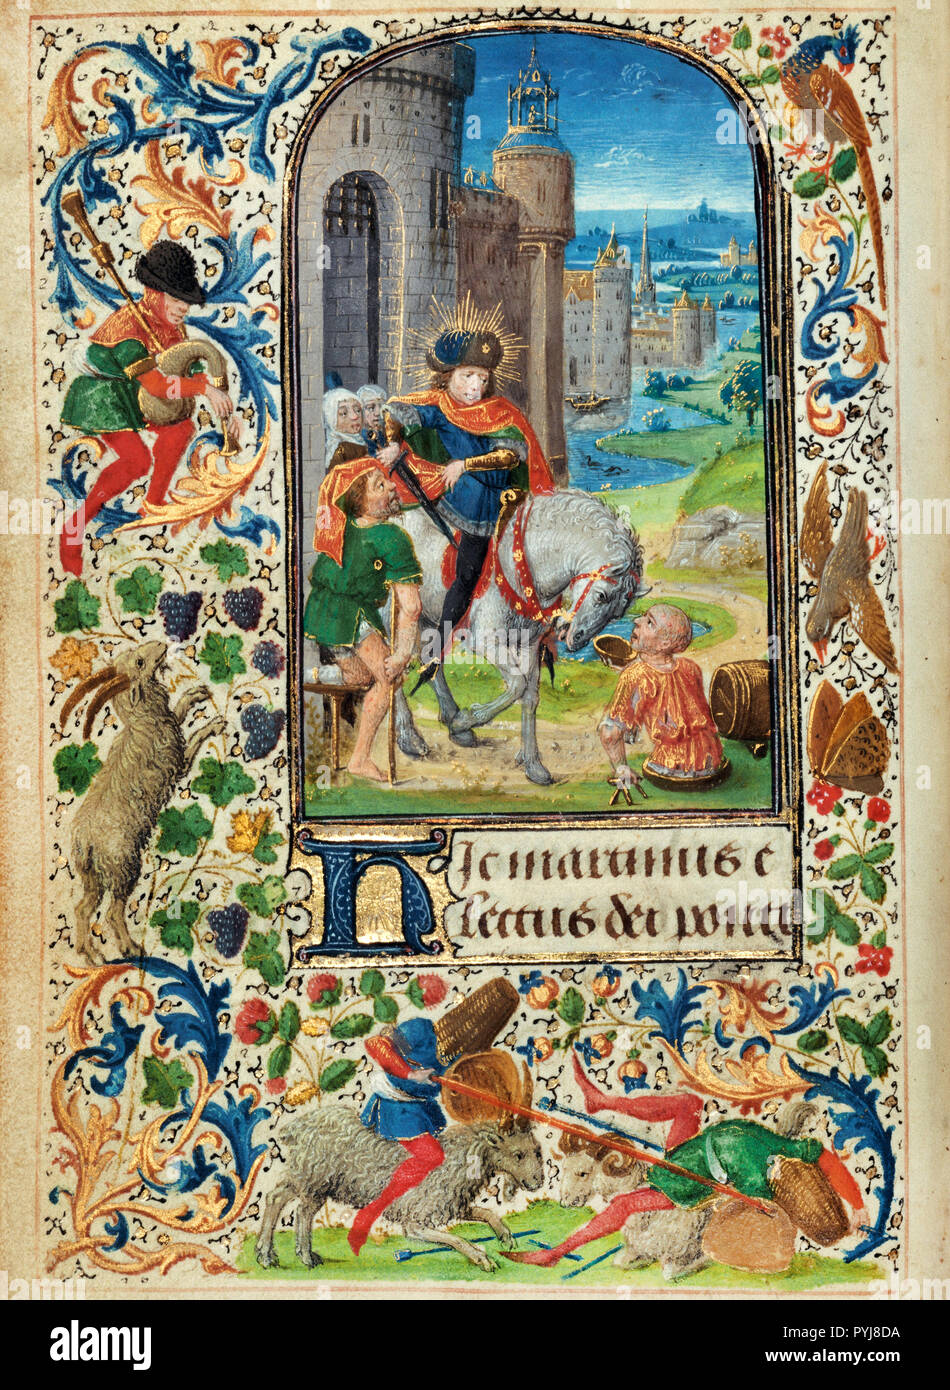 Hic martinus e
lectus dei ponti
alamy
Image ID: PYJ8DA
www.alamy.com